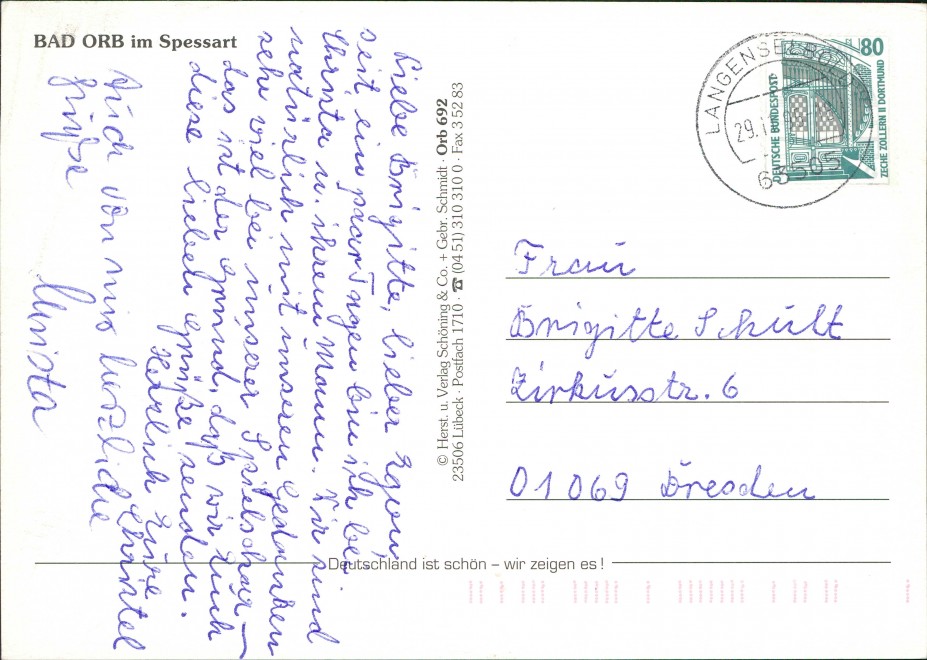 BAD ORB im Spessart
Liebe Brigitte, lieber Egon,
seit ein paar Tagen bin ich bei
Christa u. ihrem Mann. Wir sind
natürlich mit unseren Gedanken
sehr viel bei unserer Spielschar –
das ist der Grund, daß wir Euch
diese lieben Grüße senden.
Herzlich Eure
Christel
Auch von mir herzliche
Grüße
Christa
© Herst. u. Verlag Schöning & Co. + Gebr. Schmidt · Orb 692
23506 Lübeck · Postfach 1710 · ☎ (04 51) 310 310 0 · Fax 3 52 83
LANGENSELBOLD
29.1
63505
80
DEUTSCHE BUNDESPOST
ZECHE ZOLLERN II DORTMUND
Frau
Brigitte Schült
Zirkusstr. 6
01069 Dresden
Deutschland ist schön – wir zeigen es!